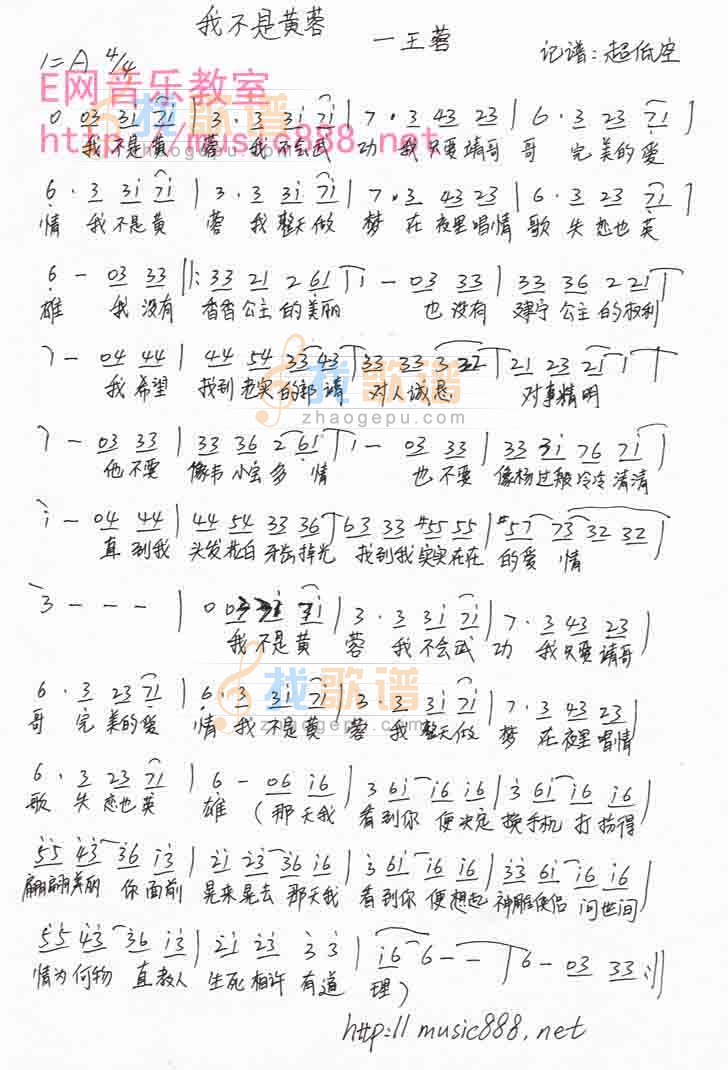 我不是黄蓉
一王蓉
记谱：超低空
1=A 4/4
E网音乐教室
http://music888.net
0 03 31 71 | 3·3 31 71 | 7·3 43 23 | 6·3 23 71 |
我不是黄 蓉 我不会武 功 我只要靖哥 哥 完美的爱
6·3 31 71 | 3·3 31 71 | 7·3 43 23 | 6·3 23 71 |
情 我不是黄 蓉 我整天做 梦 在夜里唱情 歌 失恋也英
6 - 03 33 ||: 33 21 2 61 | 1 - 03 33 | 33 36 2 21 |
雄 我没有 香香公主的美丽 也没有 建宁公主的权利
1 - 04 44 | 44 54 33 43 | 33 33 3 32 | 21 23 21 1 |
我希望 找到老实的郭靖 对人诚恳 对事精明
找歌谱
zhaogepu.com
1 - 03 33 | 33 36 2 61 | 1 - 03 33 | 33 31 76 71 |
他不要 像韦小宝多情 也不要 像杨过般冷冷清清
1 - 04 44 | 44 54 33 36 | 63 33 #55 55 | #57 73 32 32 |
直到我 头发花白牙齿掉光 找到我实实在在 的爱情
3 - - - | 0 03 31 | 3·3 31 71 | 7·3 43 23 |
我不是黄 蓉 我不会武 功 我只要靖哥
6·3 23 71 | 6·3 31 71 | 3·3 31 71 | 7·3 43 23 |
哥 完美的爱 情 我不是黄 蓉 我整天做 梦 在夜里唱情
6·3 23 71 | 6 - 06 16 | 3 61 16 16 | 3 61 16 16 |
歌 失恋也英 雄 （那天我 看到你 便决定 换手机 打扮得
55 43 36 13 | 21 23 36 16 | 3 61 16 16 | 33 61 16 16 |
翩翩美丽 你面前 晃来晃去 那天我 看到你 便想起 神雕侠侣 问世间
55 43 36 13 | 21 23 3 3 | 16 6 - - | 6 - 03 33 :||
情为何物 直教人 生死相许 有道 理）
http://music888.net